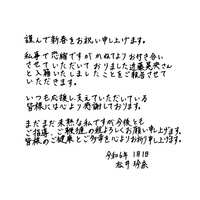 謹んで新春をお祝い申し上げます。
私事で恐縮ですが かねてよりお付き合い
させていただいて おりました遠藤晃央さん
と入籍いたしましたことをご報告させて
いただきます。
いつも応援し支えていただいている
皆様には心より感謝しております。
まだまだ未熟な私ですが今後とも
ご指導、ご鞭撻の程よろしくお願い申し上げます。
皆様のご健康とご多幸を心よりお祈り申し上げます。
令和6年 1月1日
松井 玲奈